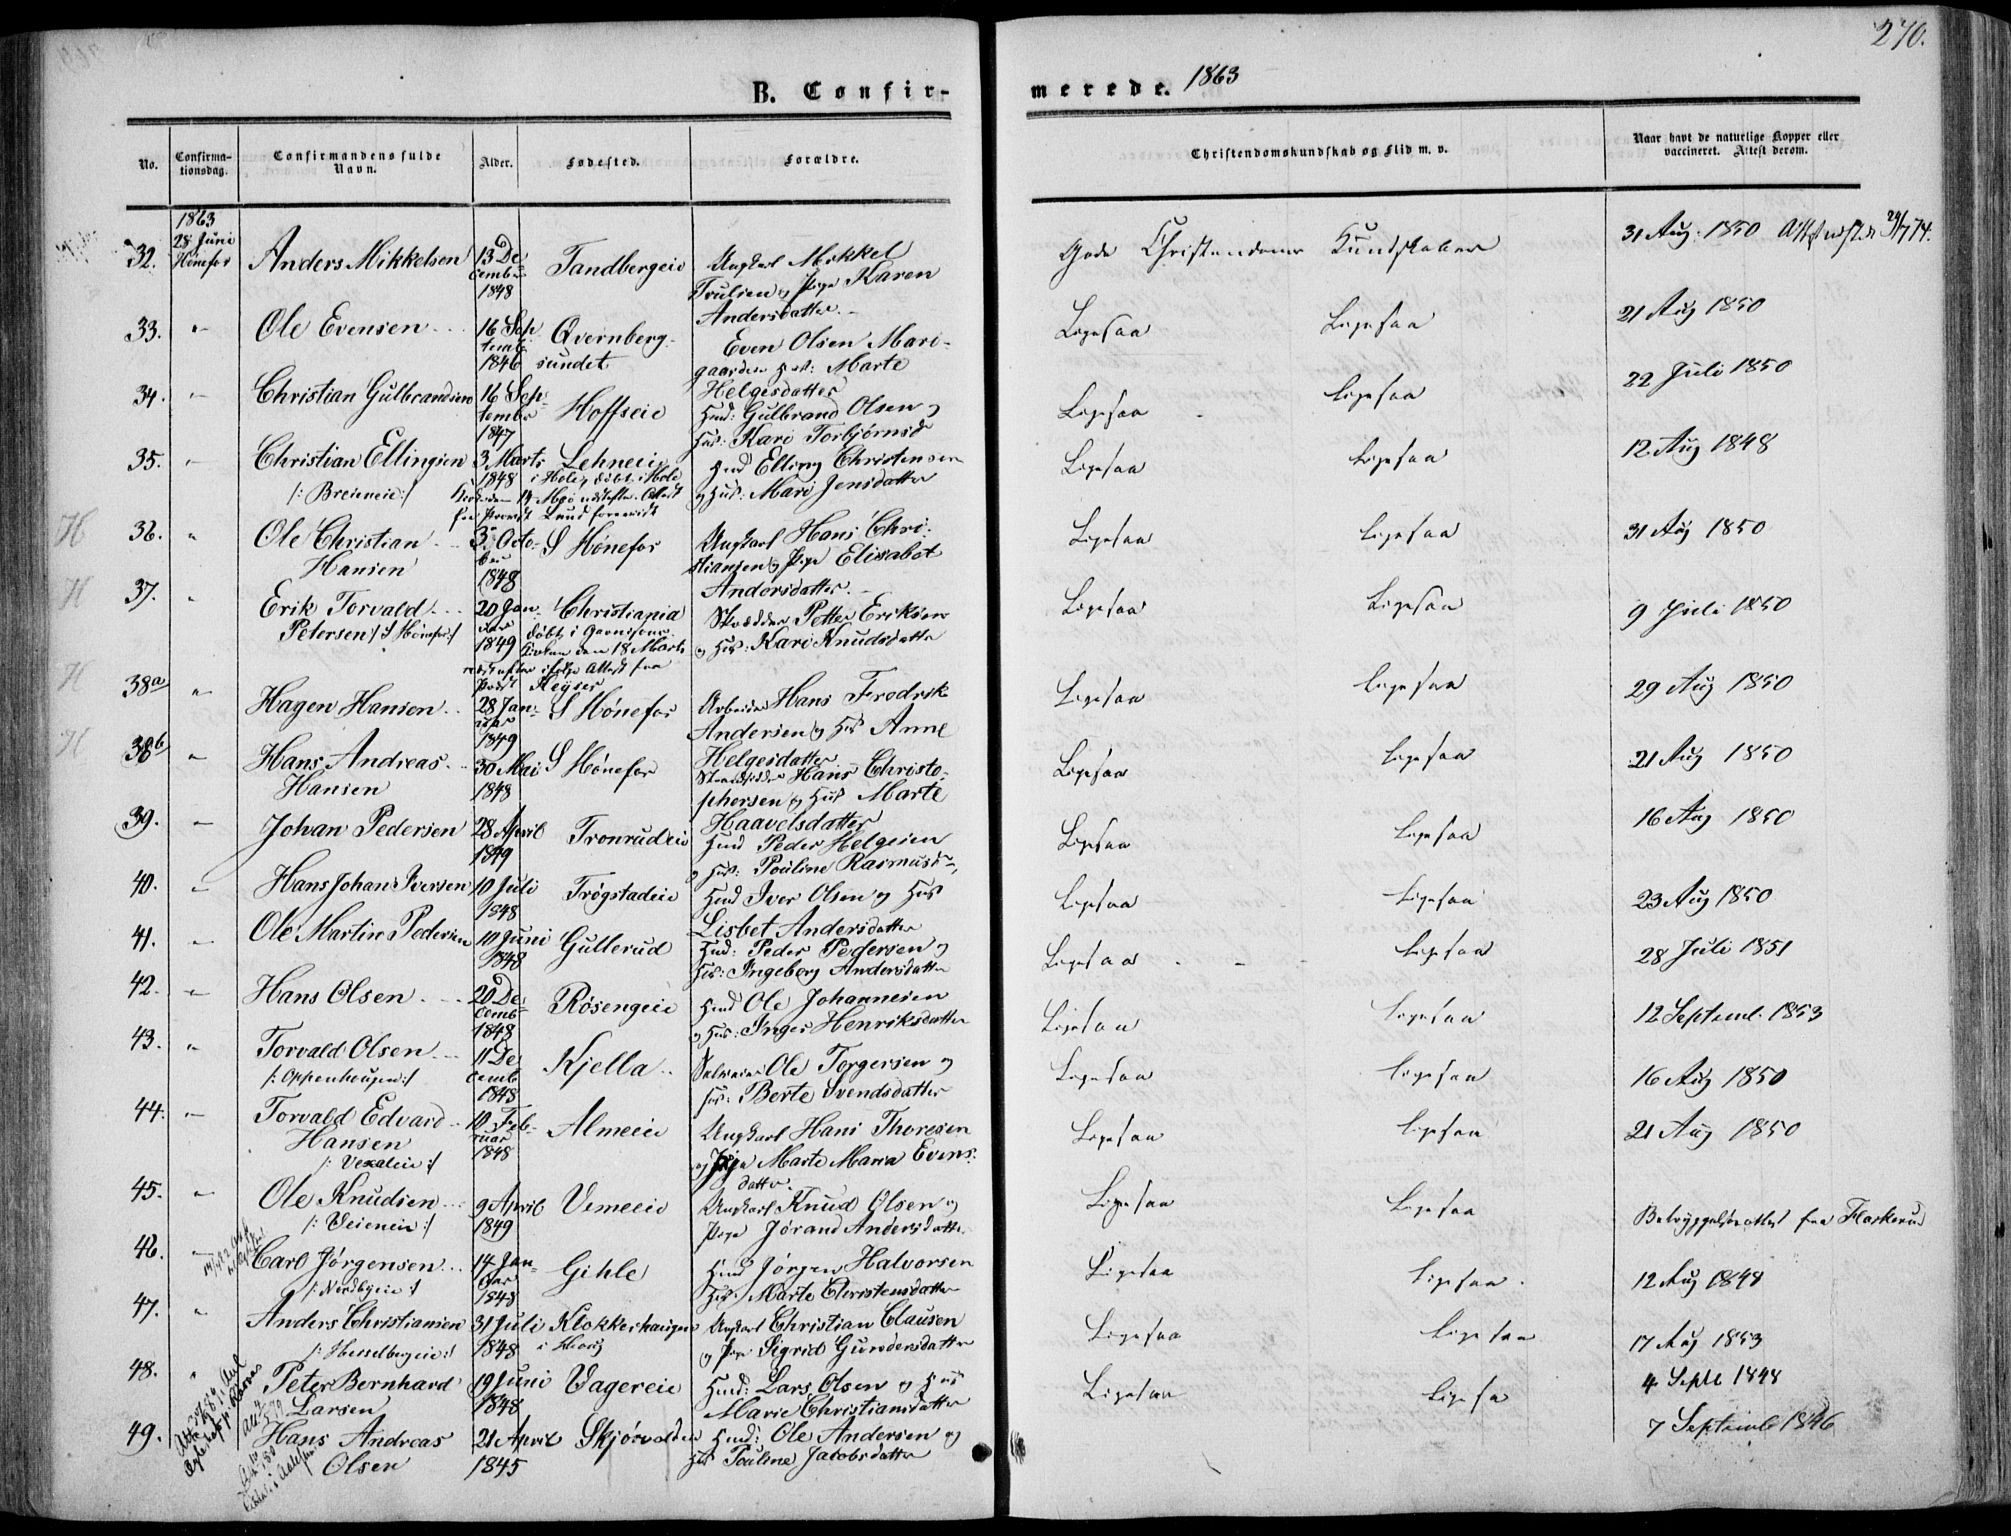 270.
B. Confir-
merede. 1863
No.
Confirma-
tionsdag.
Confirmandens fulde
Navn.
Alder.
Fødested.
Forældre.
Christendomskundskab og Flid m. v.
Naar havt de naturlige Kopper eller
vaccineret. Attest derom.
1863
28 Juni
Hønefos
32. Anders Mikkelsen 13 De
cembr
1848 Tandbergeie Ungkarl Mikkel
Trulsen og Pige Karen
Andersdatter
Gode Christendoms Kundskaber 31 Aug: 1850
33. " Ole Evensen 16 Sep
temb
1846 Qvernberg-
sundet Even Olsen Mari-
gaarden Marte
Helgesdatter
Ligesaa Ligesaa 21 Aug 1850
34. " Christian Gulbrandsen 16 Sep-
tembr
1847 Hoffseie Huusd: Gulbrand Olsen og
Hus: Kari Torbjørnsd
Ligesaa Ligesaa 22 Juli 1850
35. " Christian Ellingsen 3 Marts
1848 Lehneeie
i Hole, døbt i Hole
/: Breieneie :/ Huusd Elling Christensen
og Hus: Mari Jensdatter
Ligesaa Ligesaa 12 Aug 1848
H 36. " Ole Christian
Hansen 3 Octo-
ber
1848 S Hønefos Ungkarl Hans Chri-
stiansen og Pige Elisabet
Andersdatter
Ligesaa Ligesaa 31 Aug 1850
H 37. " Erik Torvald
Petersen /: S Hønefos :/ 20 Jan-
uar
1849 Christiania
døbt i Garnisons
Kirken den 18 Marts
Attest fra
Keyser Skrædder Petter Eriksen
og Hus: Kari Knudsdatter
Ligesaa Ligesaa 9 Juli 1850
H 38a " Hagen Hansen 28 Jan-
uar
1849 S Hønefos Arbeider Hans Fredrik
Andersen og Hus Anne
Helgesdatter
Ligesaa Ligesaa 29 Aug 1850
H 38b " Hans Andreas
Hansen 30 Mai
1848 S Hønefos Hans Christo-
phersen og Hus Marte
Haavelsdatter
Ligesaa Ligesaa 21 Aug 1850
39. " Johan Pedersen 28 April
1849 Tronrudeie Huusd Peder Helgesen
og Hus: Pouline Rasmusd
Ligesaa Ligesaa 16 Aug 1850
40. " Hans Johan Iversen 10 Juli
1848 Trøgstadeie Huusd Iver Olsen og Hus
Lisbet Andersdatter
Ligesaa Ligesaa 23 Aug 1850
41. " Ole Martin Pedersen 10 Juni
1848 Gullerud Huusd: Peder Pedersen og
Hus: Ingeborg Andersdatter
Ligesaa Ligesaa 28 Juli 1851
42. " Hans Olsen 20 De-
cemb
1848 Røsengeie Huusd Ole Johannesen
og Hus: Inger Henriksdatter
Ligesaa Ligesaa 12 Septemb. 1853
43. " Torvald Olsen
/: Oppenhougen :/ 11 De
cemb
1848 Kjella Ole Torgersen og
Hus: Berte Svendsdatter
Ligesaa Ligesaa 16 Aug 1850
44. " Torvald Edvard
Hansen
/: Vexaleie :/ 10 Feb-
ruar
1848 Almeeie Ungkarl Hans Thoresen
og Pige Marte Maria Evens-
datter.
Ligesaa Ligesaa 21 Aug 1850
45. " Ole Knudsen
/: Veieneie :/ 9 April
1849 Vemeeie Ungkarl Knud Olsen og
Pige Jørand Andersdatter
Ligesaa Ligesaa Betryggelsesattest fra Flaskerud
46. " Carl Jørgensen
/: Nordbyeie :/ 14 Jan-
uar
1848 Gihle Huusd Jørgen Halvorsen
Hus: Marte Christensdatter
Ligesaa Ligesaa 12 Aug 1848
47. " Anders Christiansen
/: Hesselbergeie :/ 31 Juli
1848 Klokkerhaugen Ungkarl Christian Clausen
og Pige Sigrid Gundersdatter
Ligesaa Ligesaa 17 Aug 1853
48. " Peter Bernhard
Larsen 19 Juni
1848 Vagereie Huusd: Lars Olsen og Hus
Marie Christiansdatter
Ligesaa Ligesaa 4 Septb 1848
49. Hans Andreas
Olsen 21 April
1845 Skjørvolden Huusd: Ole Andersen og
Hus Pouline Jacobsdatter
7 Septemb 1846